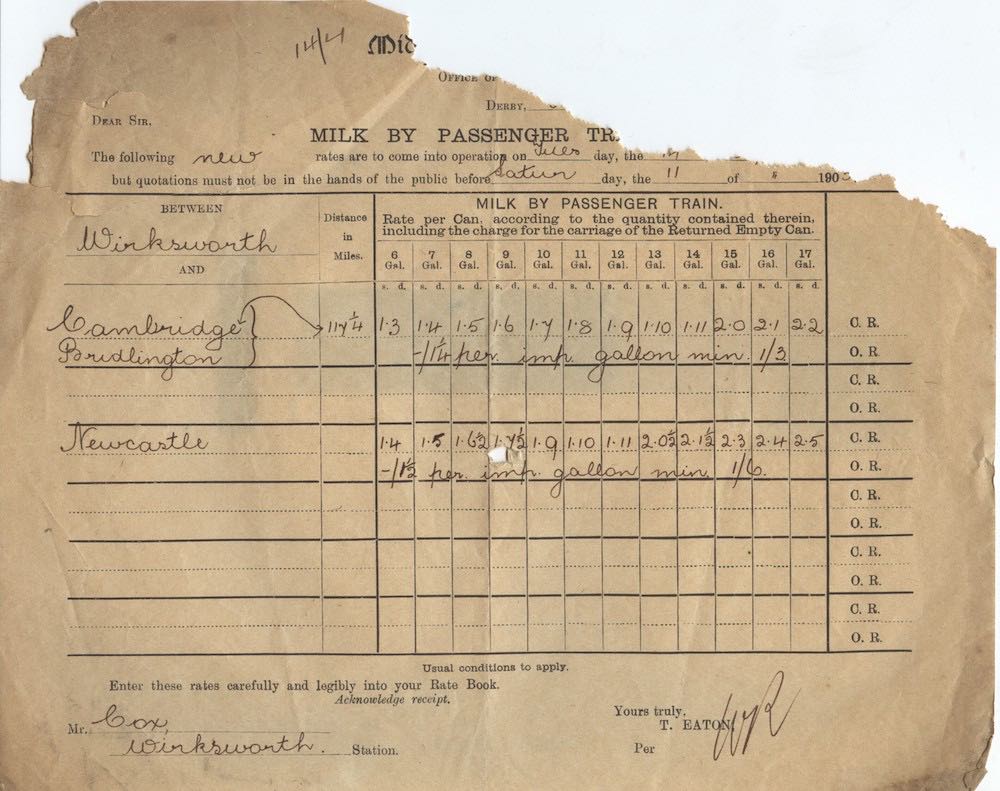 14/4 Mid
OFFICE OF
DERBY,
DEAR SIR,
MILK BY PASSENGER TR
The following new rates are to come into operation on Tues day, the
but quotations must not be in the hands of the public before Satur day, the 11 of 190
BETWEEN
Wirksworth
AND
Distance in Miles.
MILK BY PASSENGER TRAIN.
Rate per Can, according to the quantity contained therein,
including the charge for the carriage of the Returned Empty Can.
6 Gal. 7 Gal. 8 Gal. 9 Gal. 10 Gal. 11 Gal. 12 Gal. 13 Gal. 14 Gal. 15 Gal. 16 Gal. 17 Gal.
s. d. s. d. s. d. s. d. s. d. s. d. s. d. s. d. s. d. s. d. s. d. s. d.
Cambridge 117¼ 1·3 1·4 1·5 1·6 1·7 1·8 1·9 1·10 1·11 2·0 2·1 2·2 C. R.
Bridlington -/1¼ per imp gallon min. 1/3 O. R.
C. R.
O. R.
Newcastle 1·4 1·5 1·6½ 1·7½ 1·9 1·10 1·11 2·0½ 2·1½ 2·3 2·4 2·5 C. R.
-/1½ per imp. gallon min. 1/6. O. R.
C. R.
O. R.
C. R.
O. R.
C. R.
O. R.
Usual conditions to apply.
Enter these rates carefully and legibly into your Rate Book.
Acknowledge receipt.
Mr. Cox,
Wirksworth. Station.
Yours truly,
T. EATON,
Per